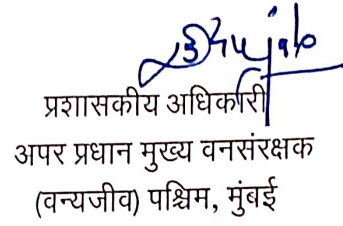 प्रशासकीय अधिकारी
अपर प्रधान मुख्य वनसंरक्षक
(वन्यजीव) पश्चिम, मुंबई